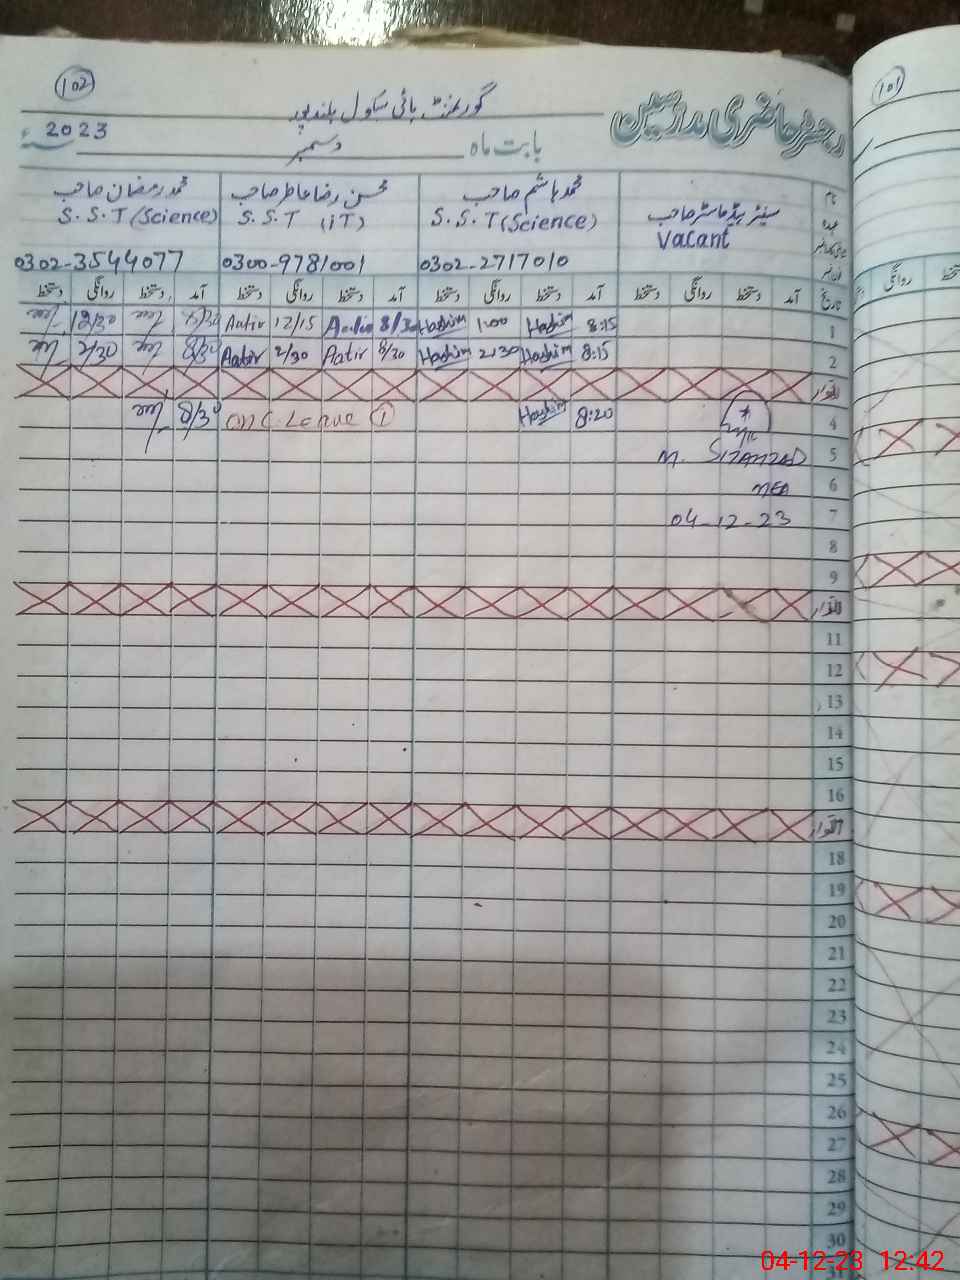 102
101
رجسٹر حاضری مدرسین
گورنمنٹ ہائی سکول بلند پور
بابت ماہ دسمبر 2023ء
نام سینئر ہیڈ ماسٹر صاحب محمد ہاشم صاحب محسن رضا عاطر صاحب محمد رمضان صاحب
عہدہ Vacant S.S.T (Science) S.S.T (iT) S.S.T (Science)
0302-2717010 0300-9781001 0302-3544077
تاریخ آمد دستخط روانگی دستخط آمد دستخط روانگی دستخط آمد دستخط روانگی دستخط آمد دستخط روانگی دستخط
روانگی
1 8:15 Hashim 1:00 Hashim 8/30 Aatir 12/15 Aatir 8/30 12/30
2 8:15 Hashim 2:30 Hashim 8/30 Aatir 2/30 Aatir 8/30 2/30
اتوار
4 8:20 Hashim on C.Leave 1 8/30
5 M. SHAHZAD
6 MEA
7 04-12-23
8
9
اتوار
11
12
13
14
15
16
اتوار
18
19
20
21
22
23
24
25
26
27
28
29
30
31
04-12-23 12:42